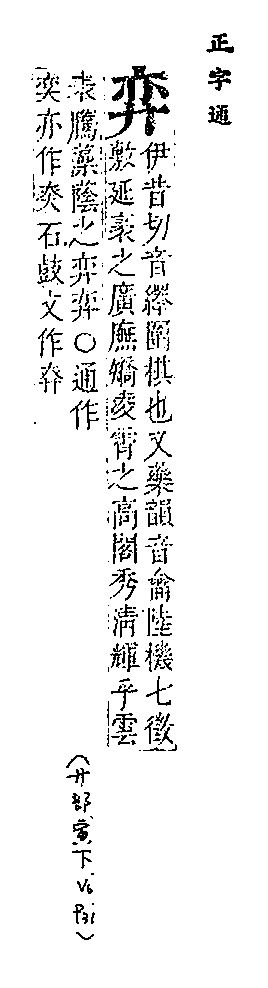 正字通
弈
伊昔切音繹圍棋也又藥韻音龠陸機七徵
敷延袤之廣廡嬌夌霄之高閣秀淸輝乎雲
表騰藻蔭之弈弈○通作
奕亦作 石鼓文作
（廾部寅下 V6 P31）